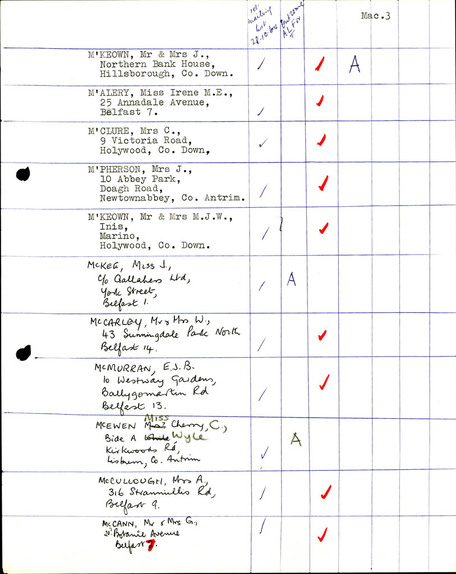 Mac.3
1st
mailing
list
M'KEOWN, Mr & Mrs J.,
Northern Bank House,
Hillsborough, Co. Down.
A
M'ALERY, Miss Irene M.E.,
25 Annadale Avenue,
Belfast 7.
M'CLURE, Mrs C.,
9 Victoria Road,
Holywood, Co. Down,
M'PHERSON, Mrs J.,
10 Abbey Park,
Doagh Road,
Newtownabbey, Co. Antrim.
M'KEOWN, Mr & Mrs M.J.W.,
Inis,
Marino,
Holywood, Co. Down.
McKEE, Miss J,
c/o Gallahers Ltd,
York Street,
Belfast 1.
A
McCARLEY, Mr & Mrs W,
43 Sunningdale Park North
Belfast 14.
McMURRAN, E.J.B.
10 Westway Gardens,
Ballygomartin Rd
Belfast 13.
Miss
McEWEN Cherry, C,
Bide A Wyle
Kirkwoods Rd,
Lisburn, Co. Antrim
A
McCULLOUGH, Mrs A,
316 Stranmillis Rd,
Belfast 9.
McCANN, Mr & Mrs G,
Botanic Avenue
Belfast 7.